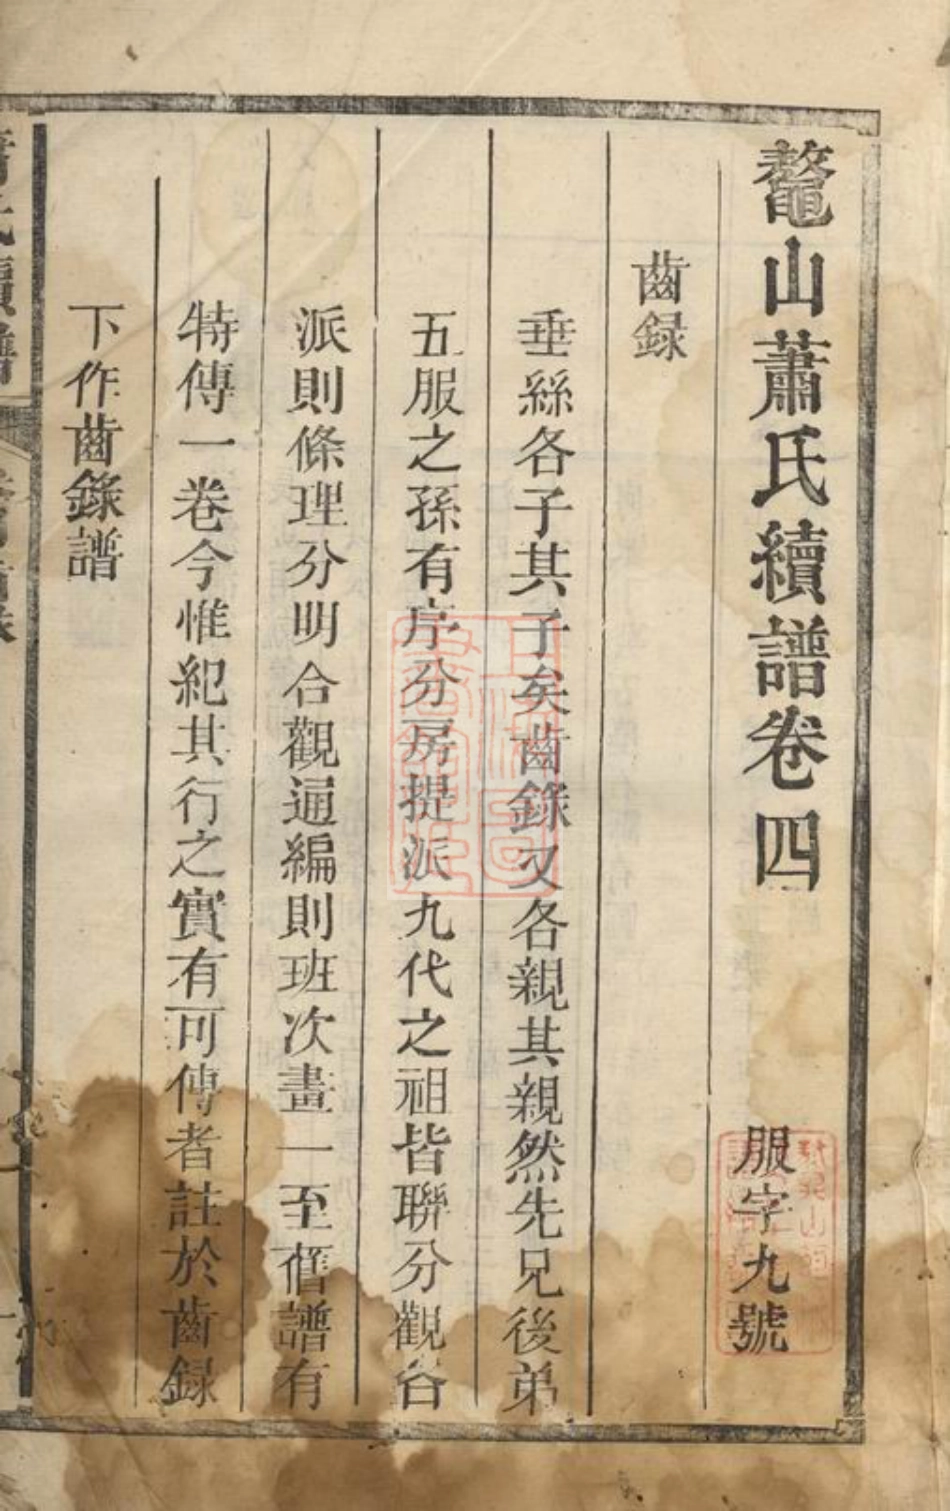 鼇山蕭氏續譜卷四
服字九號
齒録
垂絲各子其子矣齒錄又各親其親然先兄後弟
五服之孫有序分房提派九代之祖皆聯分觀各
派則條理分明合觀通編則班次畫一至舊譜有
特傳一卷今惟紀其行之實有可傳者註於齒録
下作齒錄譜